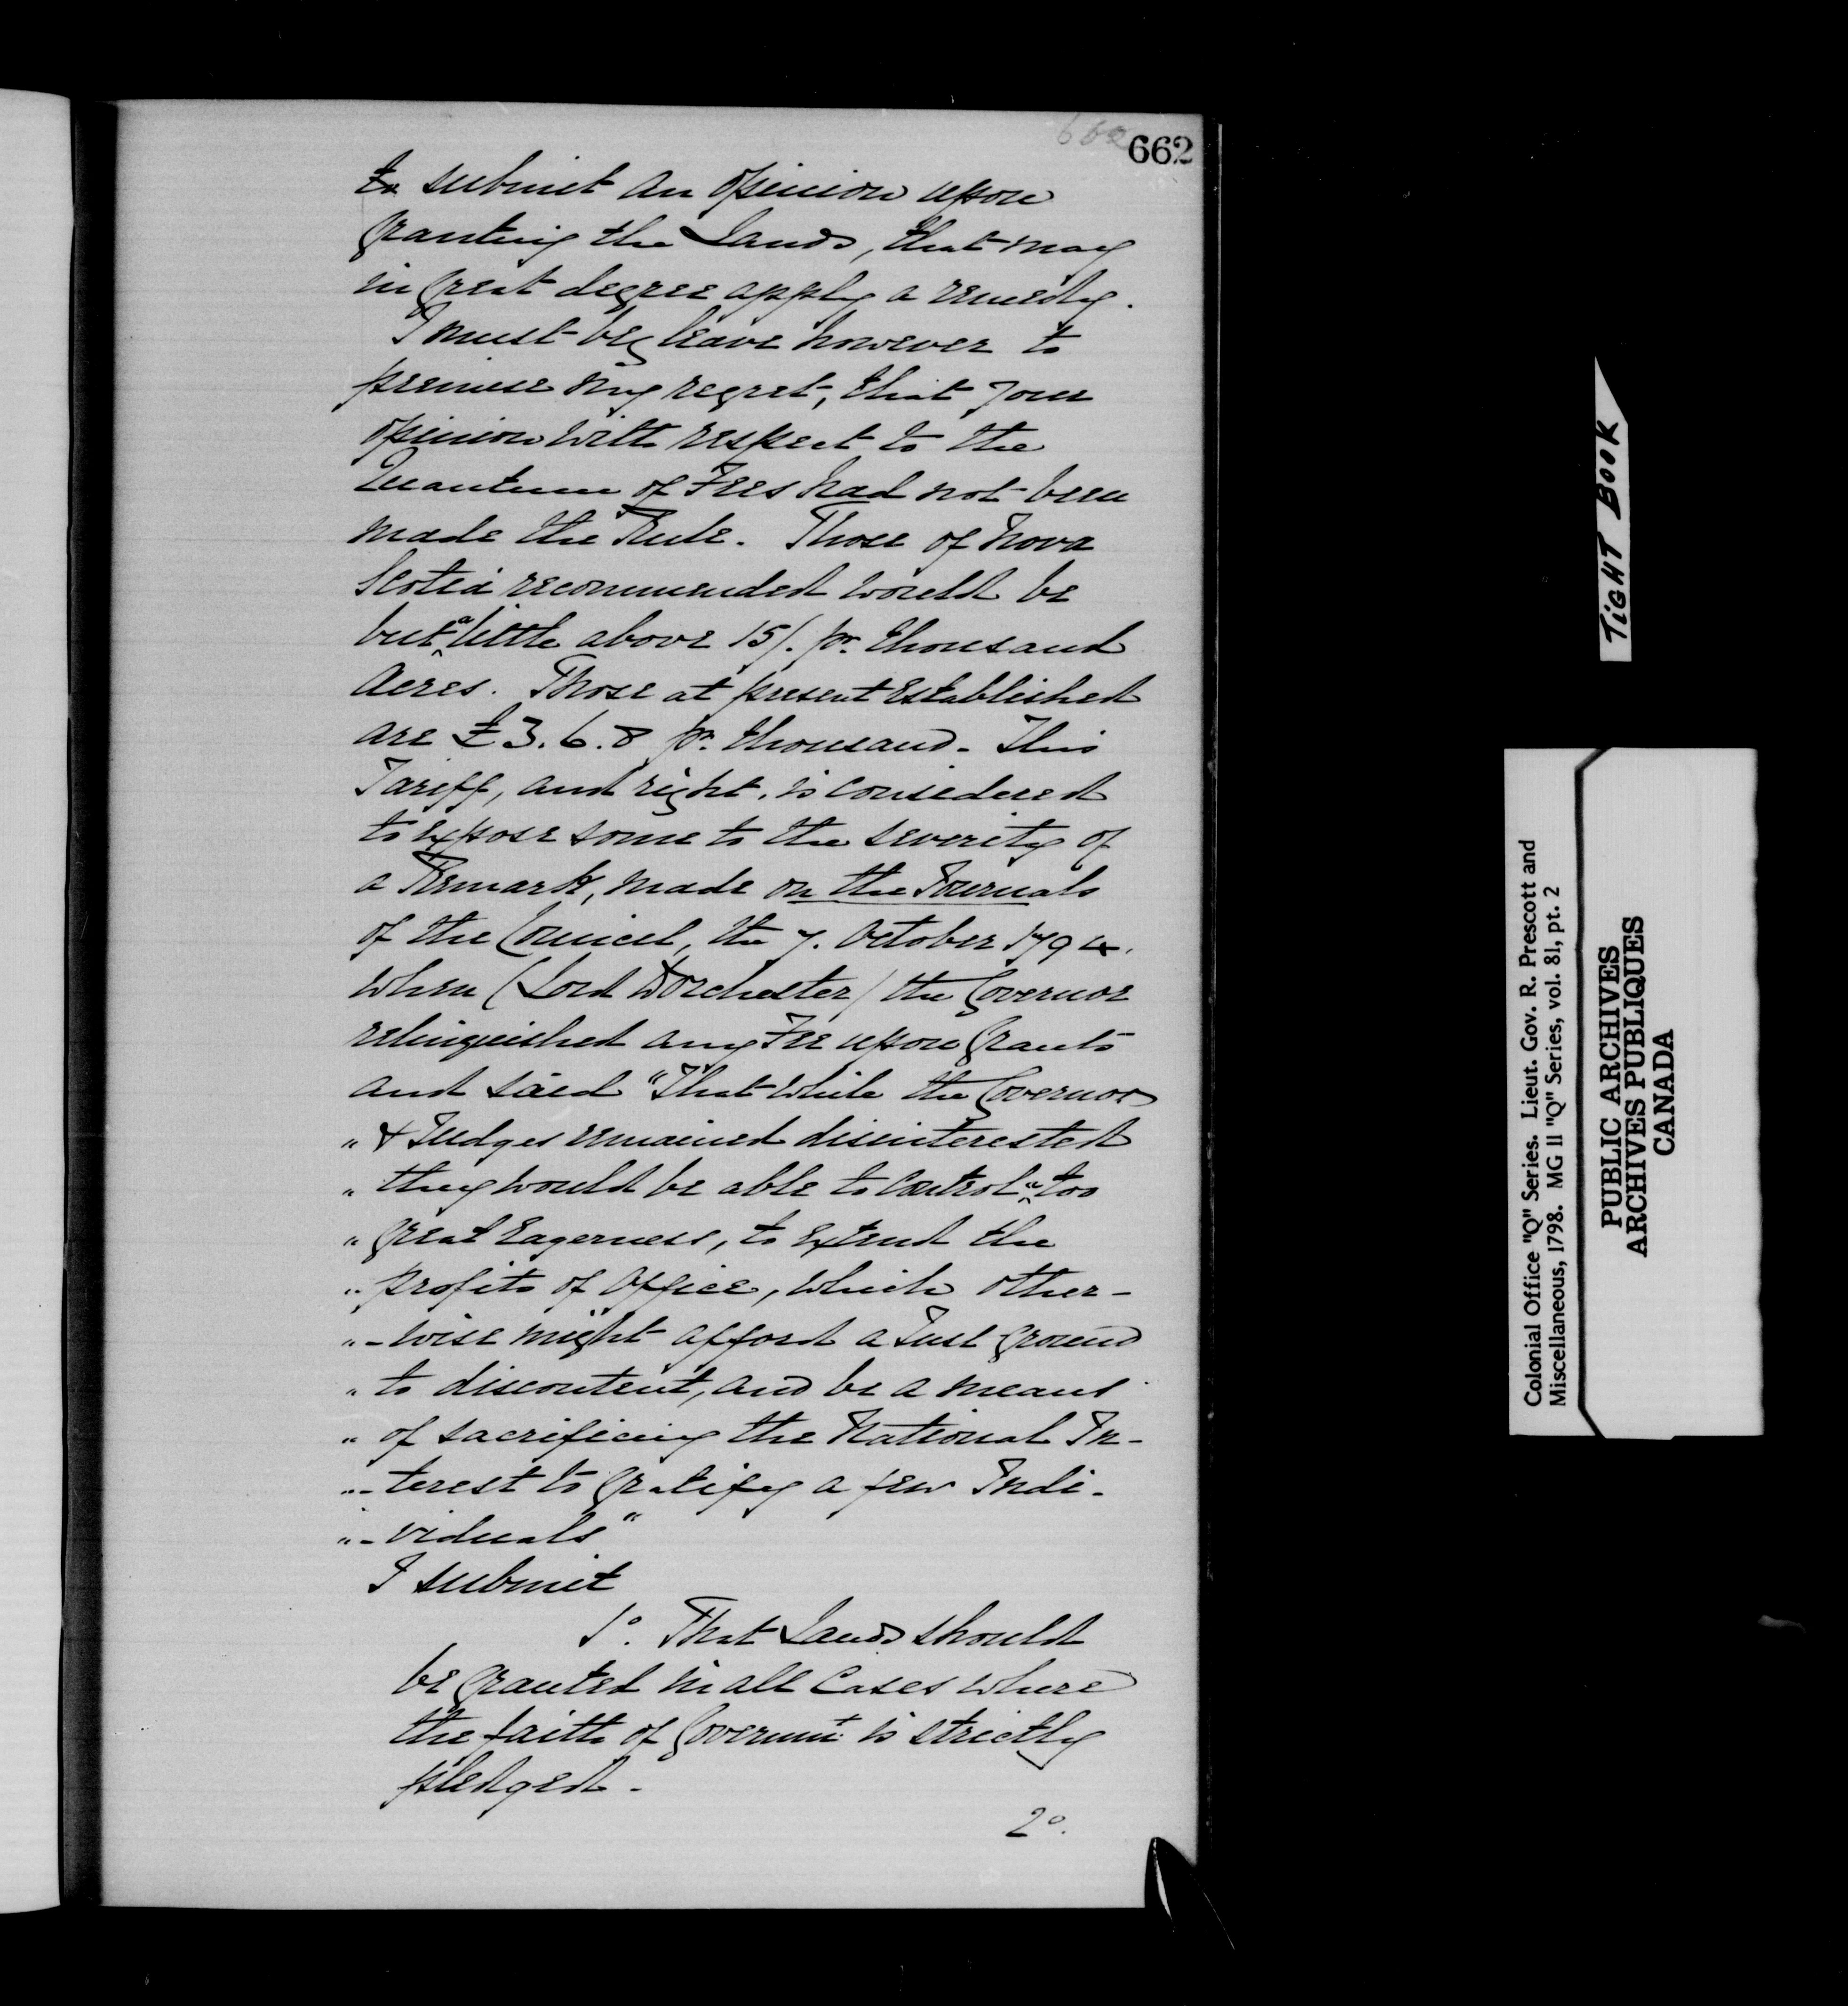 662
662
to submit an opinion upon
granting the Lands, that may
in great degree apply a remedy.
I must beg leave however to
premise my regret, that your
opinion with respect to the
Quantum of Fees had not been
made the Rule. Those of Nova
Scotia recommended would be
but a little above 15/. pr. thousand
Acres. Those at present Established
are £3.6.8 pr. thousand. This
Tariff, and right, is considered
to expose some to the severity of
a Remark, made on the Journals
of the Council, the 7. October 1794.
when (Lord Dorchester) the Governor
relinquished any Fee upon Grants
and said "That while the Governor
" & Judges remained disinterested
" they would be able to control a too
" great Eagerness, to extend the
" profits of Office, which other-
" -wise might afford a Just ground
" to discontent, and be a means
" of sacrificing the National In-
" -terest to gratify a few Indi-
" -viduals"
I submit
1°. That Lands should
be granted in all Cases where
the faith of Governmt. is strictly
pledged.
2°.
TIGHT BOOK
Colonial Office "Q" Series. Lieut. Gov. R. Prescott and
Miscellaneous, 1798. MG 11 "Q" Series, vol. 81, pt. 2
PUBLIC ARCHIVES
ARCHIVES PUBLIQUES
CANADA